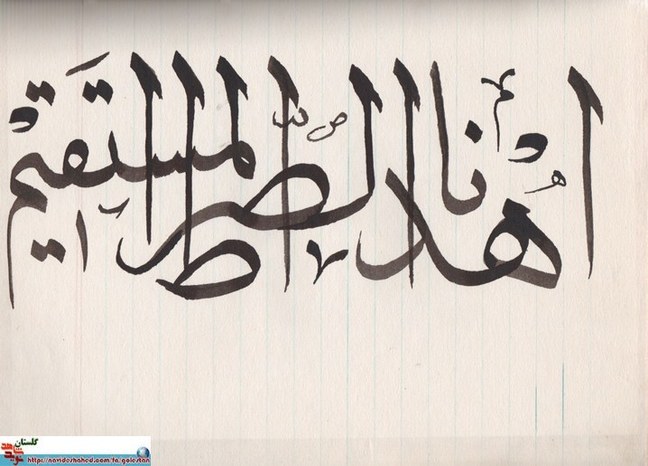 اهدنا الصراط المستقیم
گلستان
http://navideshahed.com/fa/golestan